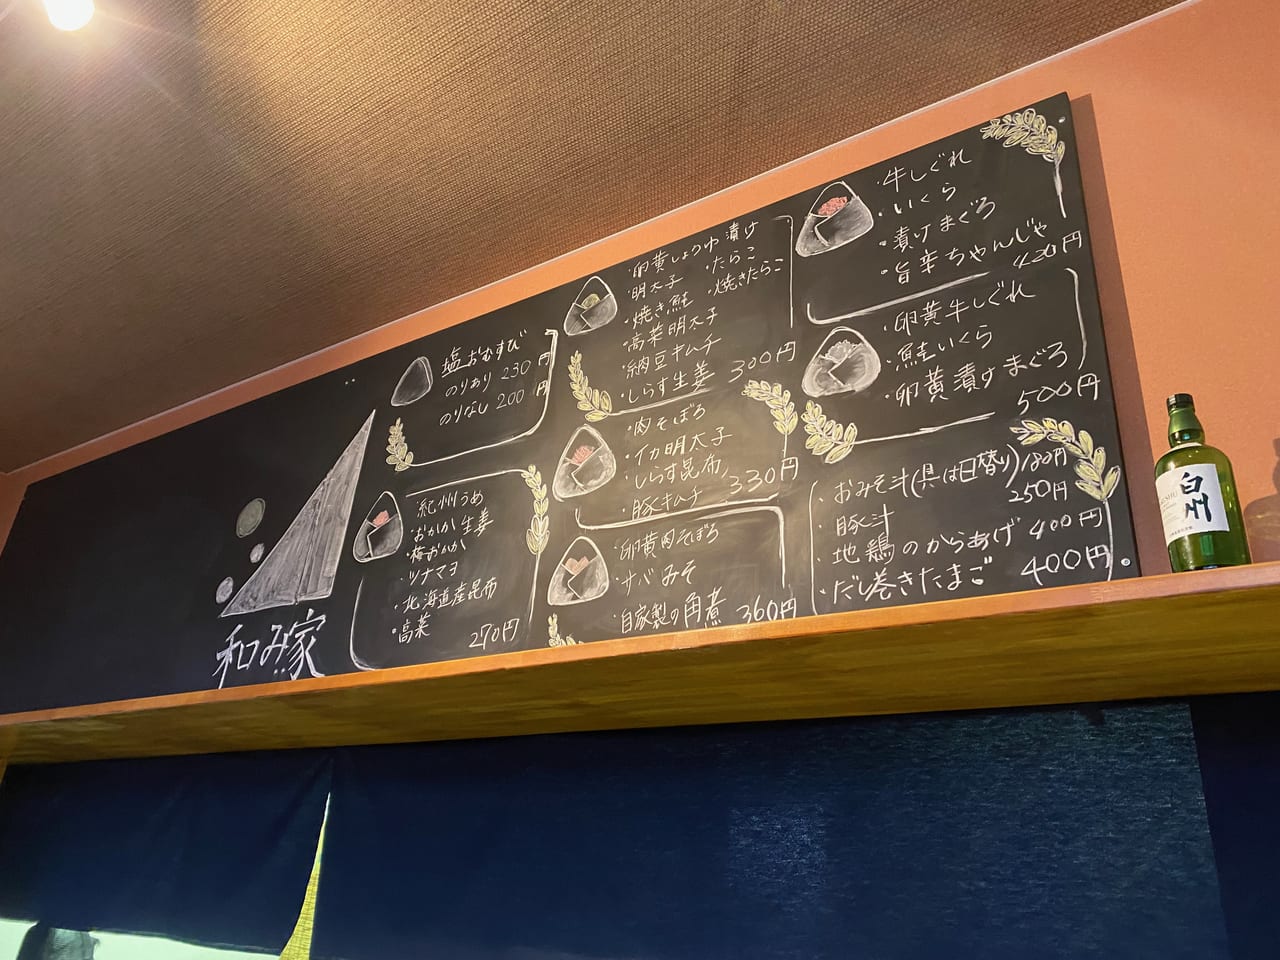 和み家
塩おむすび
のりあり 230円
のりなし 200円
・紀州うめ
・おかか生姜
・梅おかか
・ツナマヨ
・北海道産昆布
・高菜
270円
・卵黄しょうゆ漬け
・明太子 ・たらこ
・焼き鮭 ・焼きたらこ
・高菜明太子
・納豆キムチ
・しらす生姜 300円
・肉そぼろ
・イカ明太子
・しらす昆布
・豚キムチ 330円
・卵黄肉そぼろ
・サバみそ
・自家製の角煮 360円
・牛しぐれ
・いくら
・漬けまぐろ
・旨辛ちゃんじゃ
420円
・卵黄牛しぐれ
・鮭いくら
・卵黄漬けまぐろ
500円
・おみそ汁(具は日替り)
・豚汁 250円
・地鶏のからあげ 400円
・だし巻きたまご 400円
白州